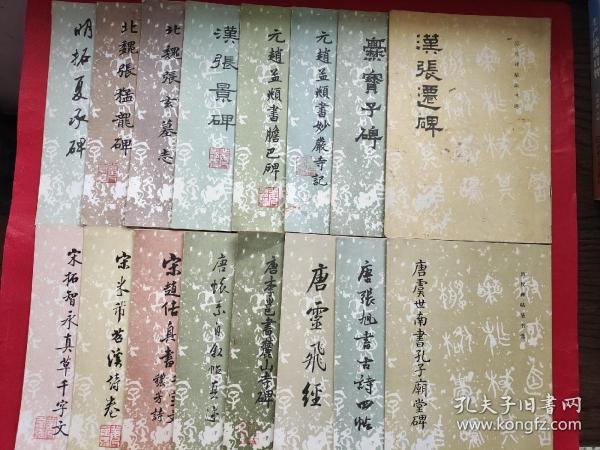 明拓夏承碑
北魏張猛龍碑
北魏張玄墓志
漢張景碑
元趙孟頫書膽巴碑
元趙孟頫書妙嚴寺記
爨寶子碑
漢張遷碑
宋拓智永真草千字文
宋米芾苕溪詩卷
宋趙佶真書
穠芳詩
唐懷素自敘帖真迹
唐李邕書麓山寺碑
唐靈飛經
唐張旭書古詩四帖
唐虞世南書孔子廟堂碑
历代碑帖法书选
孔夫子旧书网
www.kongfz.com